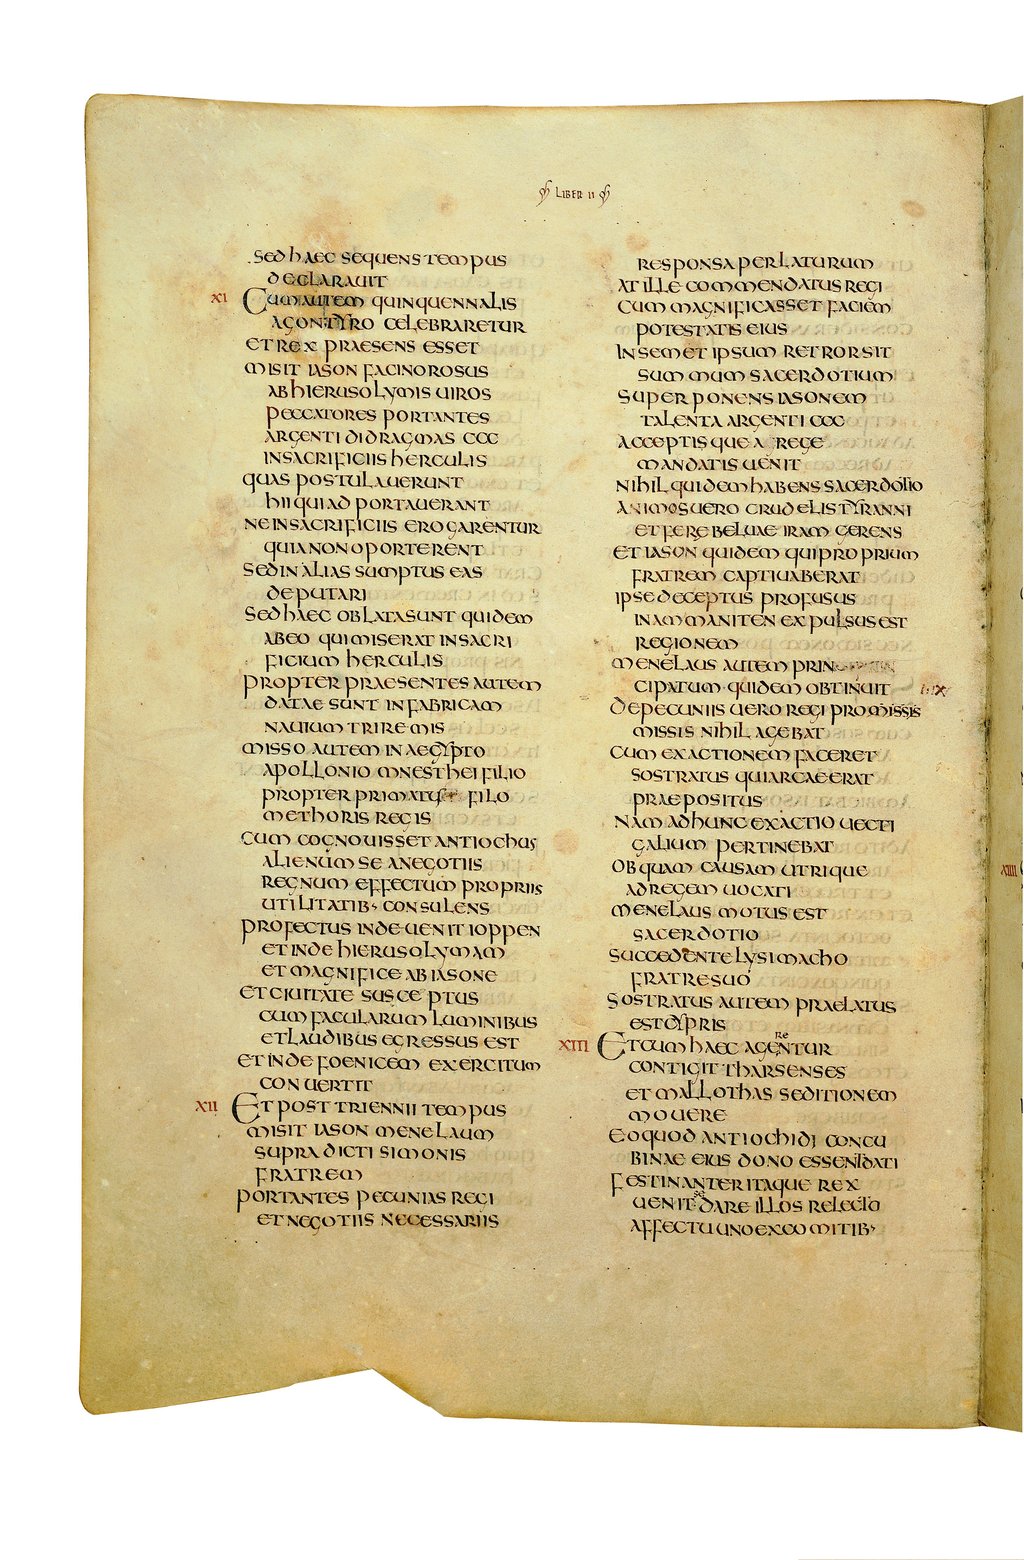 LIBER II
SED HAEC SEQUENS TEMPUS
DECLARAUIT
XI CUM AUTEM QUINQUENNALIS
AGON TYRO CELEBRARETUR
ET REX PRAESENS ESSET
MISIT IASON FACINOROSUS
AB HIERUSOLYMIS UIROS
PECCATORES PORTANTES
ARGENTI DIDRAGMAS CCC
IN SACRIFICIIS HERCULIS
QUAS POSTULAUERUNT
HII QUI ADPORTAUERANT
NE IN SACRIFICIIS EROGARENTUR
QUIA NON OPORTERENT
SED IN ALIAS SUMPTUS EAS
DEPUTARI
SED HAEC OBLATA SUNT QUIDEM
AB EO QUI MISERAT IN SACRI
FICIUM HERCULIS
PROPTER PRAESENTES AUTEM
DATAE SUNT IN FABRICAM
NAUIUM TRIREMIS
MISSO AUTEM IN AEGYPTO
APOLLONIO MNESTHEI FILIO
PROPTER PRIMATUS FILO
METHORIS REGIS
CUM COGNOUISSET ANTIOCHUS
ALIENUM SE A NEGOTIIS
REGNUM EFFECTUM PROPRIIS
UTILITATIB· CONSULENS
PROFECTUS INDE UENIT IOPPEN
ET INDE HIERUSOLYMAM
ET MAGNIFICE AB IASONE
ET CIUITATE SUSCEPTUS
CUM FACULARUM LUMINIBUS
ET LAUDIBUS EGRESSUS EST
ET INDE FOENICEM EXERCITUM
CONUERTIT
XII ET POST TRIENNII TEMPUS
MISIT IASON MENELAUM
SUPRADICTI SIMONIS
FRATREM
PORTANTES PECUNIAS REGI
ET NEGOTIIS NECESSARIIS
RESPONSA PERLATURUM
AT ILLE COMMENDATUS REGI
CUM MAGNIFICASSET FACIEM
POTESTATIS EIUS
IN SEMET IPSUM RETRORSIT
SUMMUM SACERDOTIUM
SUPERPONENS IASONEM
TALENTA ARGENTI CCC
ACCEPTISQUE A REGE
MANDATIS UENIT
NIHIL QUIDEM HABENS SACERDOTIO
ANIMOS UERO CRUDELIS TYRANNI
ET FERE BELUAE IRAM GERENS
ET IASON QUIDEM QUI PROPRIUM
FRATREM CAPTIUABERAT
IPSE DECEPTUS PROFUSUS
IN AMMANITEN EXPULSUS EST
REGIONEM
MENELAUS AUTEM PRIN
CIPATUM QUIDEM OBTINUIT
DE PECUNIIS UERO REGI PROMISSIS
MISSIS NIHIL AGEBAT
CUM EXACTIONEM FACERET
SOSTRATUS QUI ARCAE ERAT
PRAEPOSITUS
NAM AD HUNC EXACTIO UECTI
GALIUM PERTINEBAT
OB QUAM CAUSAM UTRIQUE
AD REGEM UOCATI
MENELAUS MOTUS EST
SACERDOTIO
SUCCEDENTE LYSIMACHO
FRATRE SUO
SOSTRATUS AUTEM PRAELATUS
EST CYPRIS
XIII ET CUM HAEC AGERENTUR
CONTIGIT THARSENSES
ET MALLOTHAS SEDITIONEM
MOUERE
EO QUOD ANTIOCHIDI CONCU
BINAE EIUS DONO ESSENT DATI
FESTINANTER ITAQUE REX
UENIT SEDARE ILLOS RELICTO
AFFECTU UNO EX COMITIB·